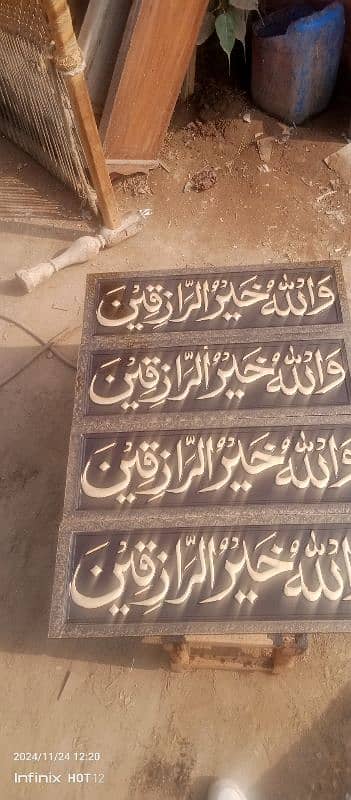 وَاللّٰهُ خَيْرُ الرَّازِقِيْنَ
وَاللّٰهُ خَيْرُ الرَّازِقِيْنَ
وَاللّٰهُ خَيْرُ الرَّازِقِيْنَ
وَاللّٰهُ خَيْرُ الرَّازِقِيْنَ
2024/11/24 12:20
Infinix HOT12